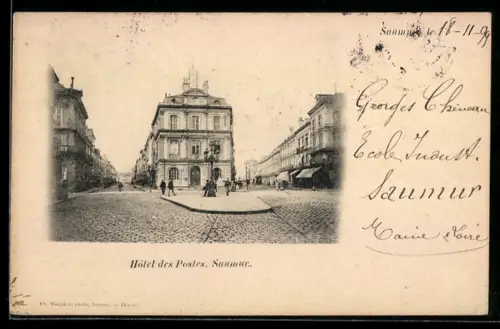 Saumur, le 18-11-99
Georges Chéneau
Ecole Indust.
Saumur
Maine & Loire
Hôtel des Postes, Saumur.
Saumur.